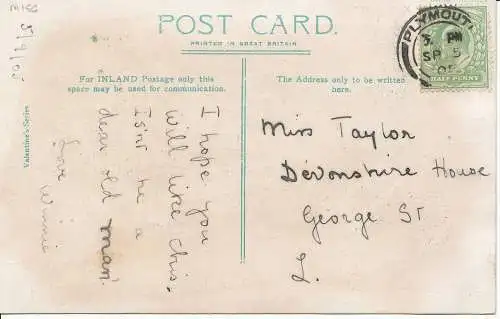 5/9/05
POST CARD.
PRINTED IN GREAT BRITAIN
PLYMOUTH
PM
SP 5
05
HALF PENNY
For INLAND Postage only this
space may be used for communication.
The Address only to be written
here.
Valentine's Series
I hope you
will like this.
Isn't he a
dear old man'
Love
Winnie
Miss Taylor
Devonshire House
George St